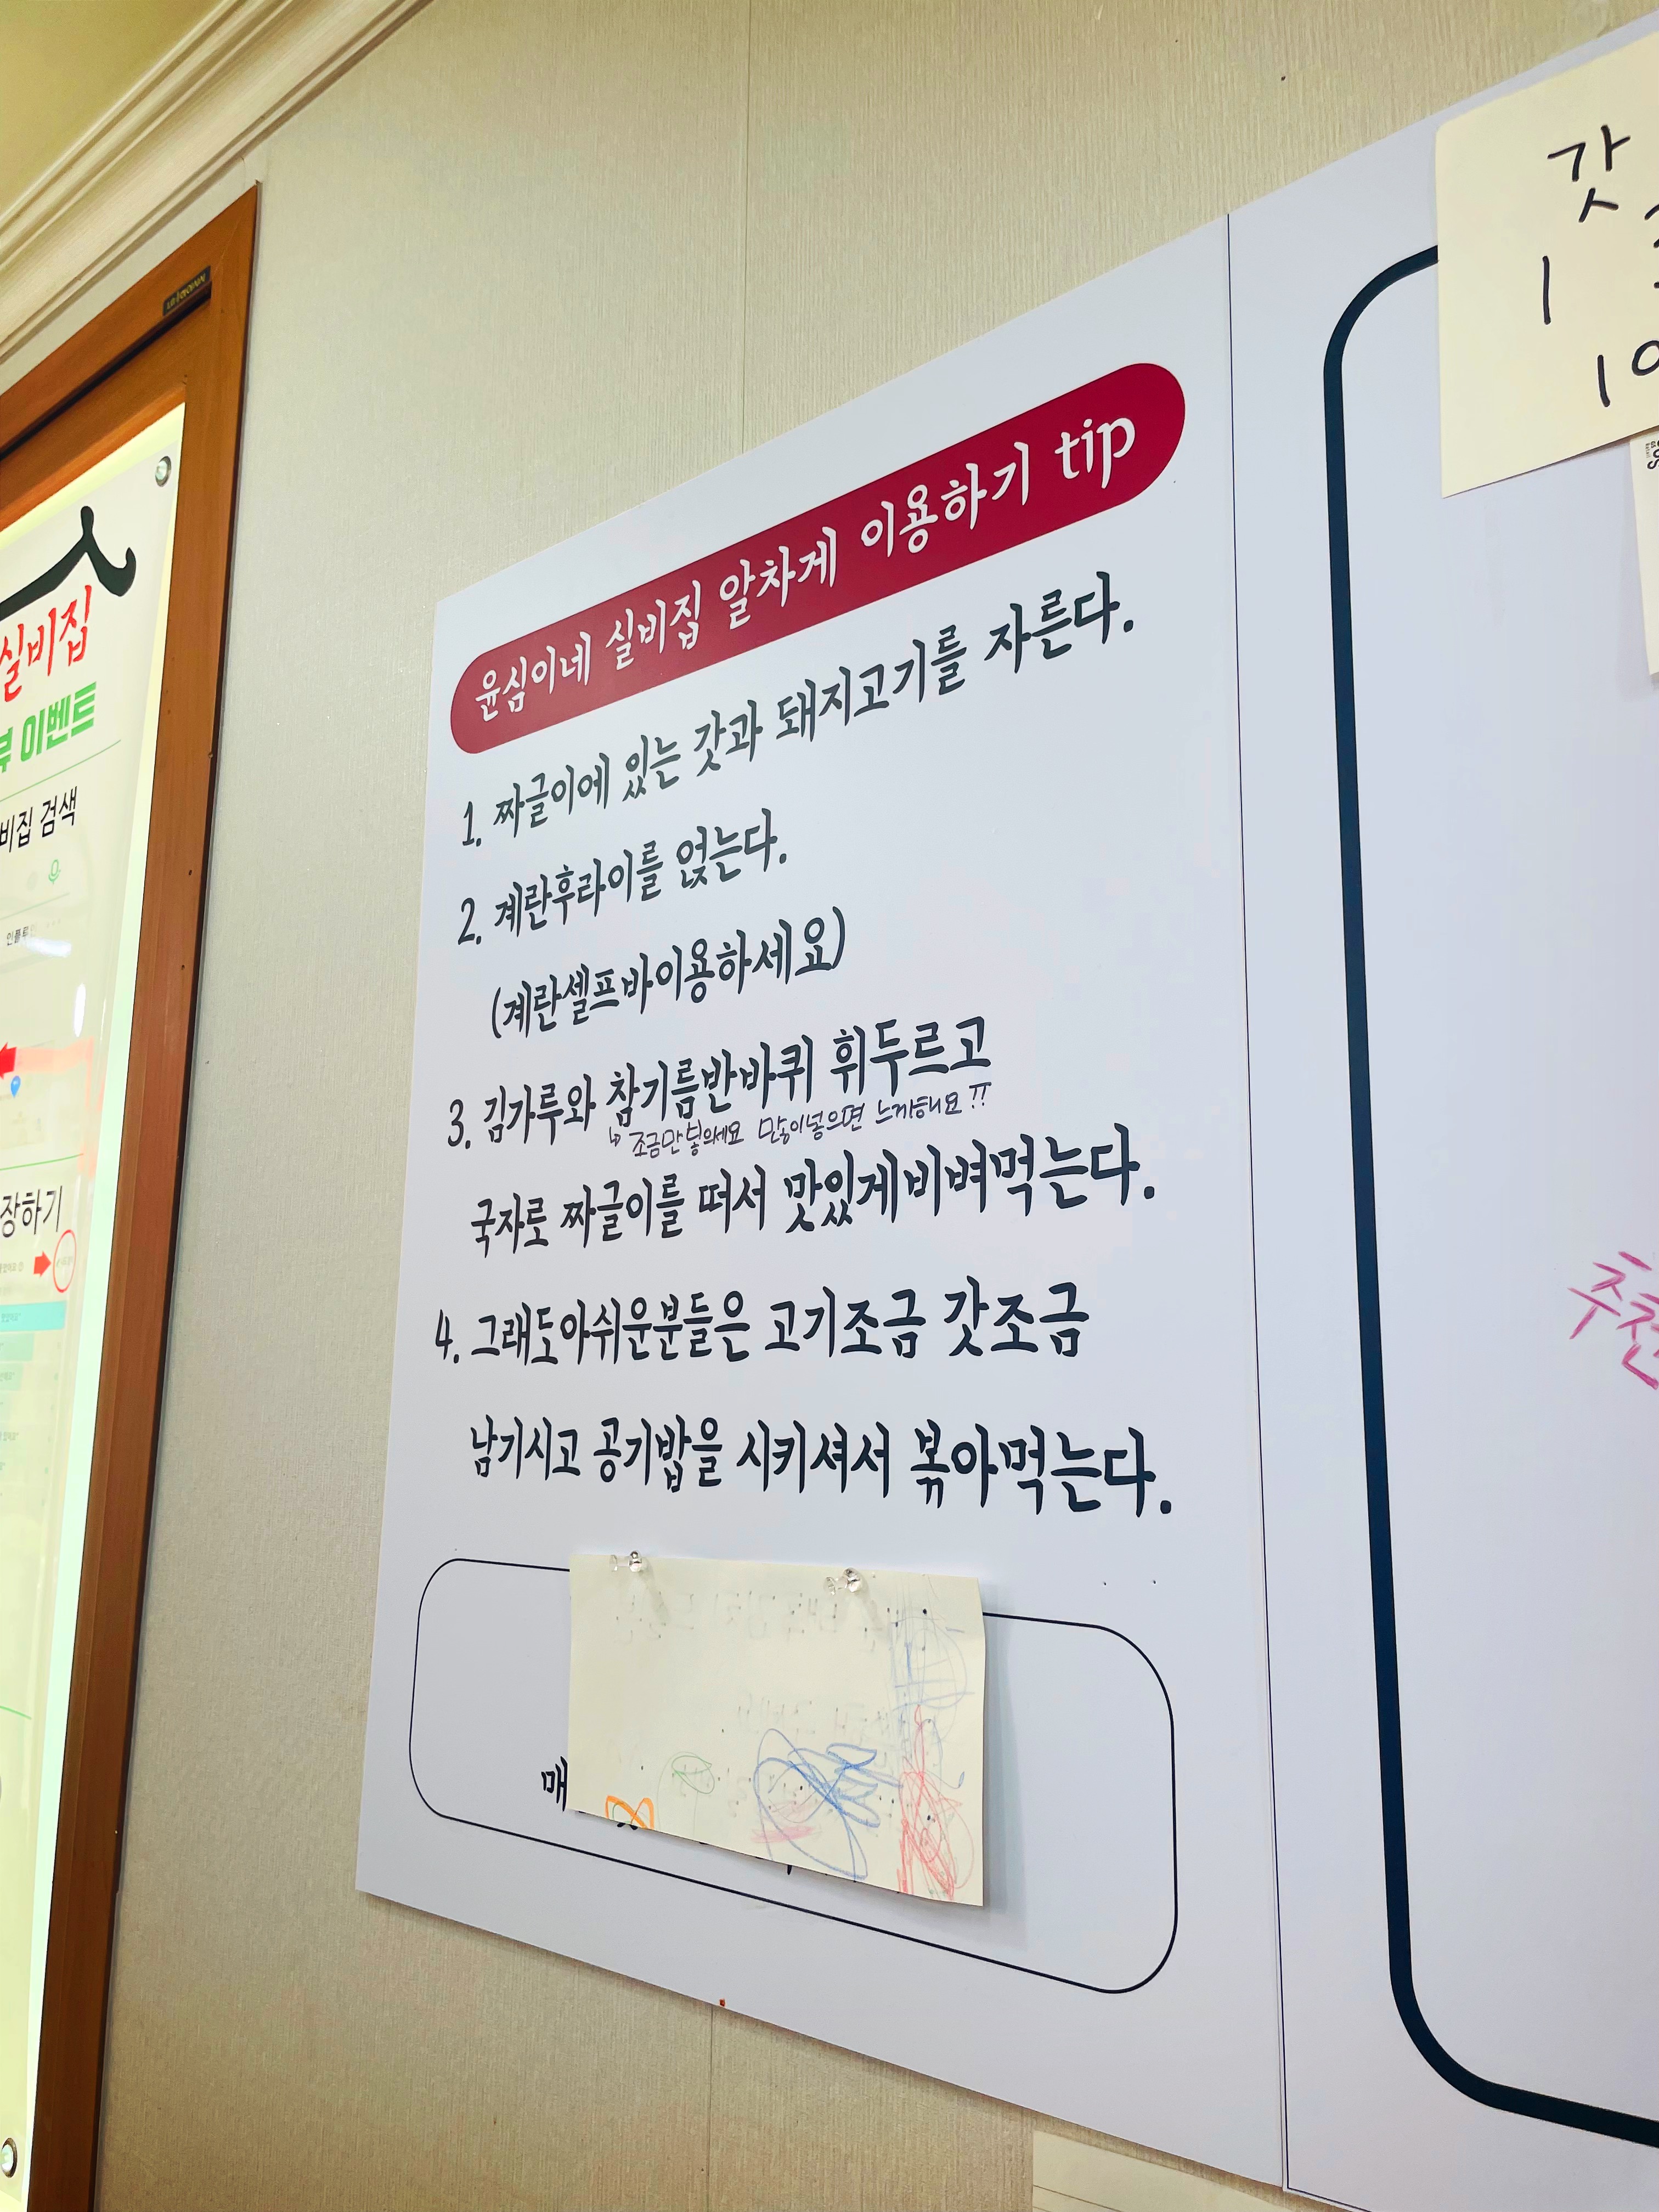 실비집
이벤트
비집 검색
장하기
윤심이네 실비집 알차게 이용하기 tip
1. 짜글이에 있는 갓과 돼지고기를 자른다.
2. 계란후라이를 얹는다.
(계란셀프바이용하세요)
3. 김가루와 참기름반바퀴 휘두르고
↳ 조금만 넣으세요 많이넣으면 느끼해요 !!
국자로 짜글이를 떠서 맛있게비벼먹는다.
4. 그래도아쉬운분들은 고기조금 갓조금
남기시고 공기밥을 시키셔서 볶아먹는다.
매
갓
1
10
추천